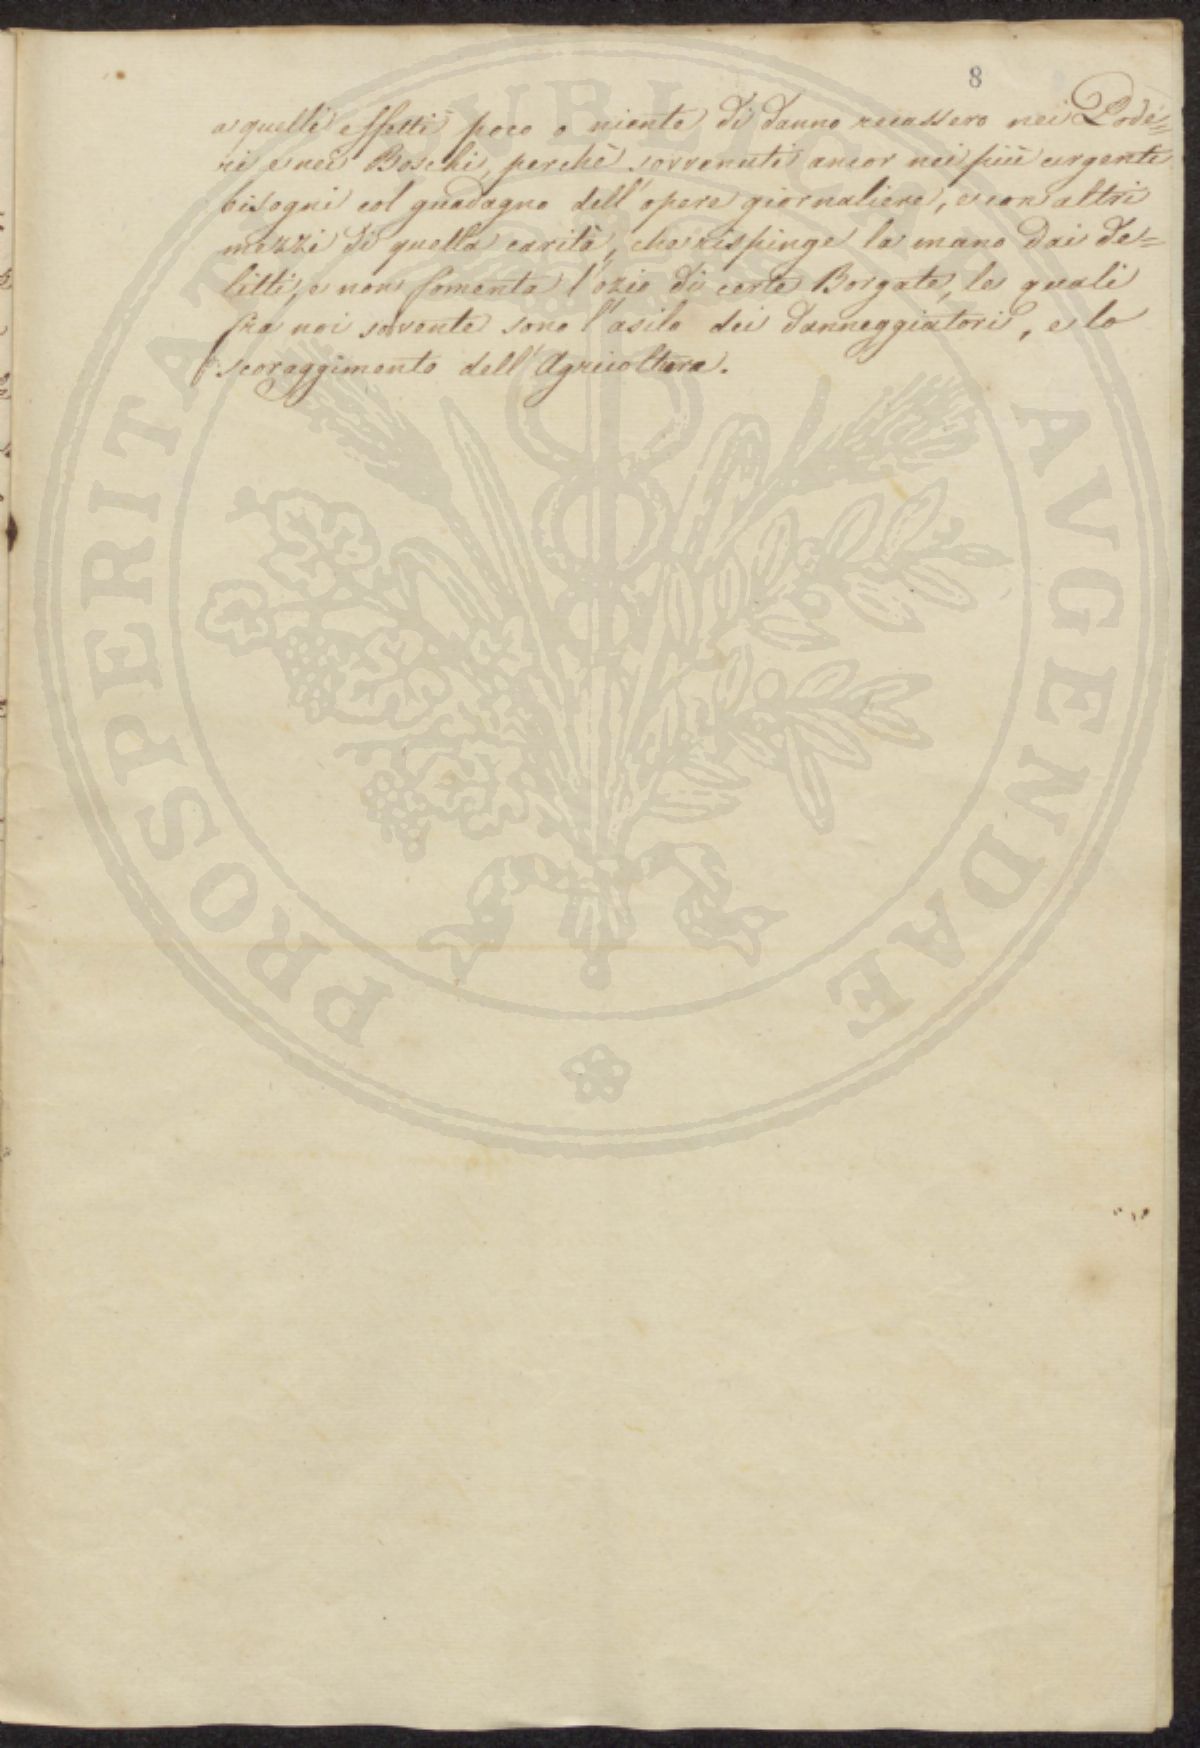 8
a quelli effetti poco o niente di danno recassero nei Pode=
ri e nei Boschi, perchè sovvenuti ancor nei più urgenti
bisogni col guadagno dell'opere giornaliere, e con altri
mezzi di quella carità, che rispinge la mano dai de=
litti, e non fomenta l'ozio di certe Borgate, le quali
fra noi sovente sono l'asilo dei danneggiatori, e lo
scoraggimento dell'Agricoltura.
PROSPERITATI PUBLICAE AUGENDAE